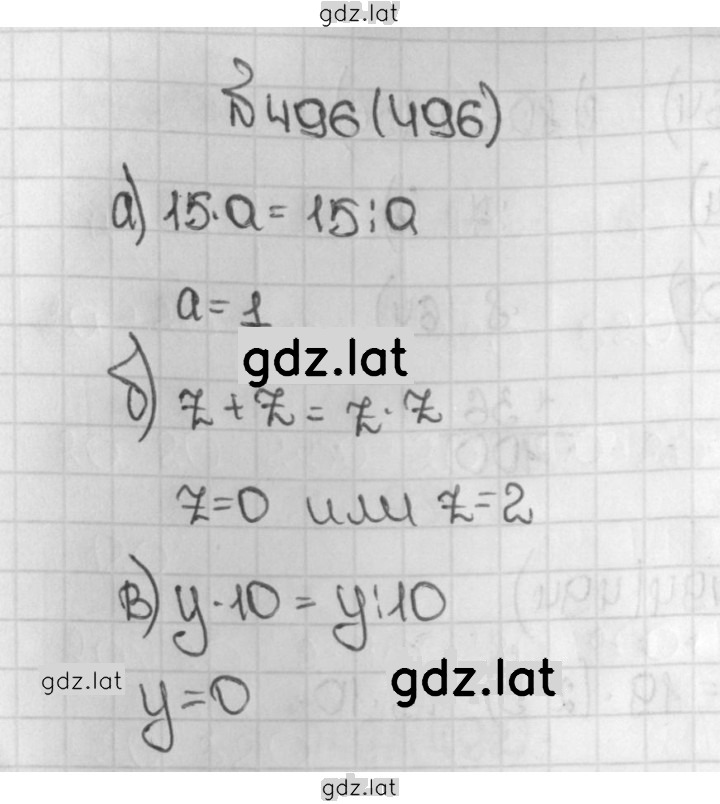 gdz.lat
№ 496 (496)
а) 15·a = 15:a
a = 1
gdz.lat
б) z + z = z·z
z = 0 или z = 2
в) y·10 = y:10
gdz.lat
y = 0
gdz.lat
gdz.lat